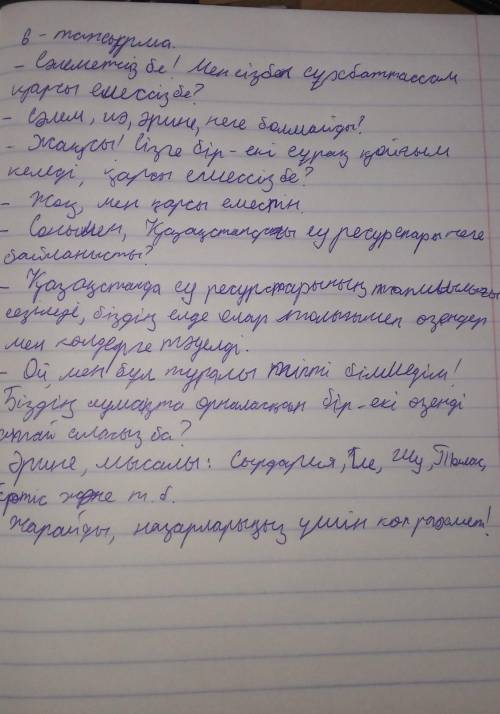 6 - тапсырма.
- Сәлеметсіз бе! Мен сізбен сұхбаттассам
қарсы емессіз бе?
- Сәлем, иә, әрине, неге болмайды?
- Жақсы! Сізге бір-екі сұрақ қойғым
келеді, қарсы емессіз бе?
- Жоқ, мен қарсы еместін.
- Сонымен, Қазақстандағы су ресурстары неге
байланысты?
- Қазақстанда су ресурстарының тапшылығы
сезіледі, біздің елде олар толығымен өзендер
мен көлдерге тәуелді.
- Ой мен бұл туралы тіпті білмедім!
Біздің аумақта орналасқан бір-екі өзенді
атай аласыз ба?
Әрине, мысалы: Сырдария, Іле, Шу, Талас,
Ертіс және т.б.
Жарайды, назарларыңыз үшін көп рахмет!